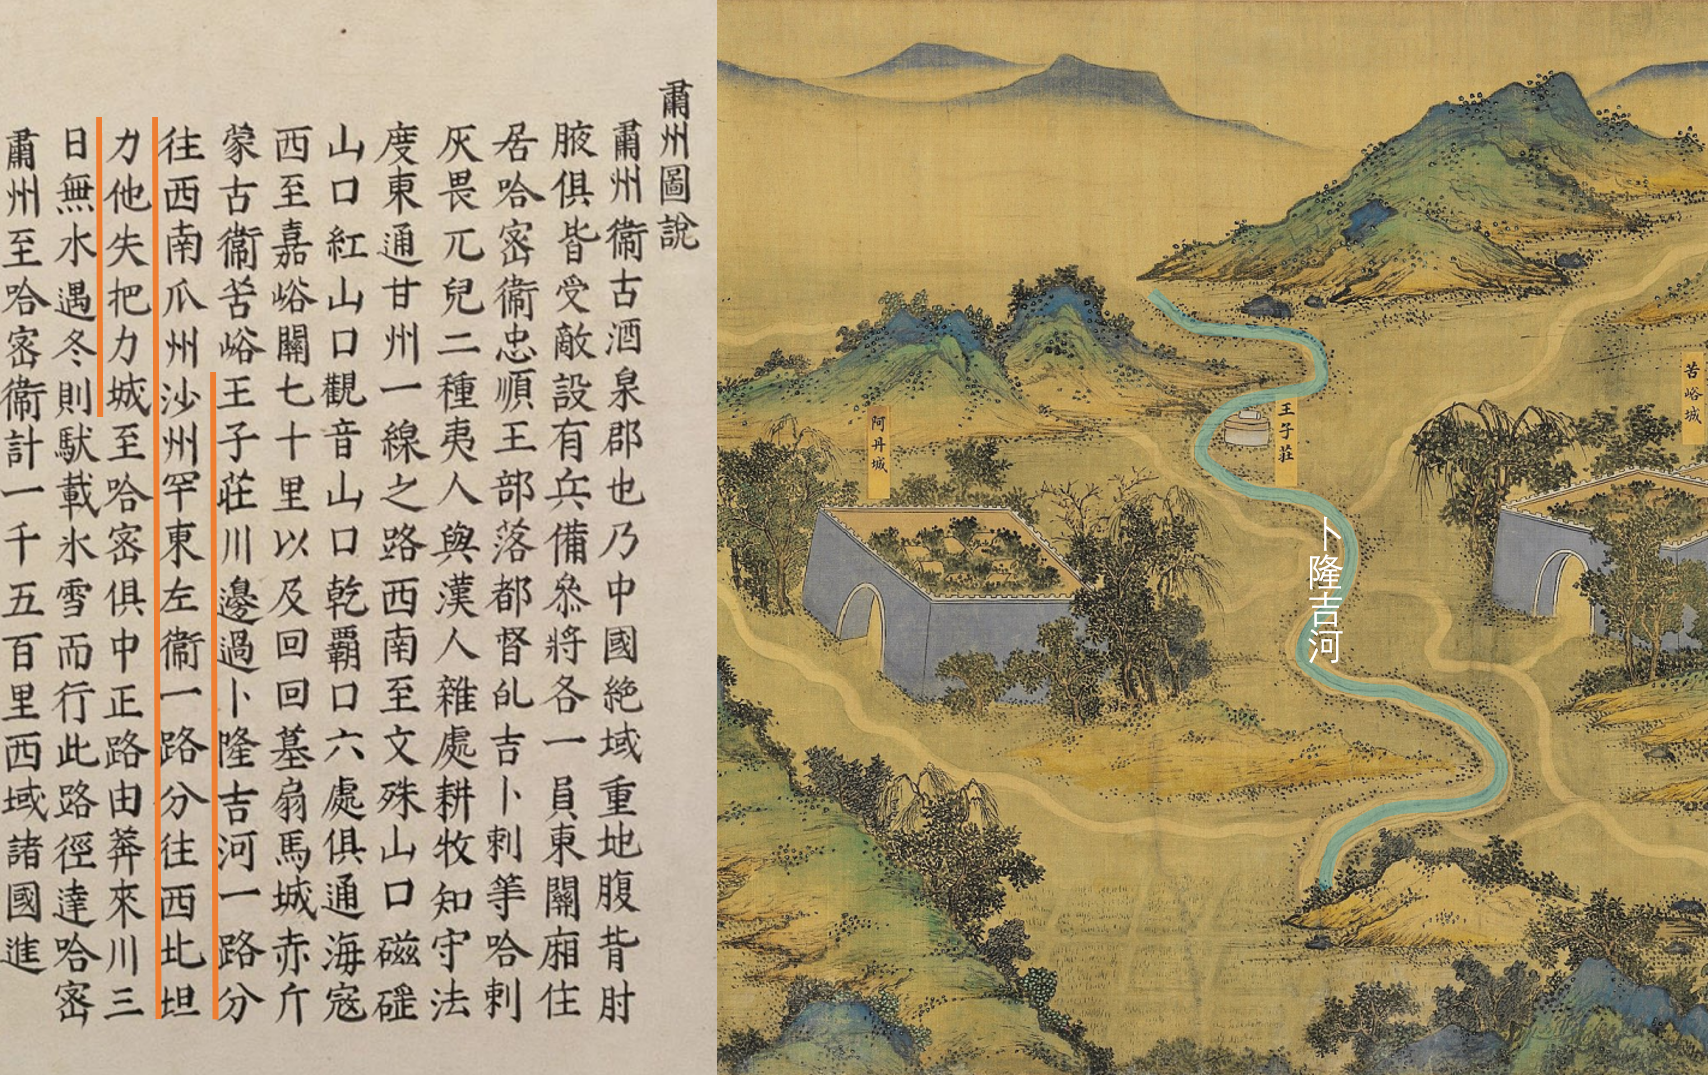 肅州圖說
肅州衞古酒泉郡也乃中國絶域重地腹背肘
腋俱皆受敵設有兵備叅將各一員東關廂住
居哈宻衞忠順王部落都督癿吉卜剌等哈剌
灰畏兀兒二種夷人與漢人雜處耕牧知守法
度東通甘州一線之路西南至文殊山口磁
山口紅山口觀音山口乾覇口六處俱通海寇
西至嘉峪關七十里以及回回墓扇馬城赤斤
蒙古衞苦峪王子莊川邊過卜隆吉河一路分
往西南瓜州沙州罕東左衞一路分往西北坦
力他失把力城至哈宻俱中正路由莾來川三
日無水遇冬則馱載氷雪而行此路徑達哈宻
肅州至哈宻衞計一千五百里西域諸國進
苦峪城
王子莊
卜隆吉河
阿丹城